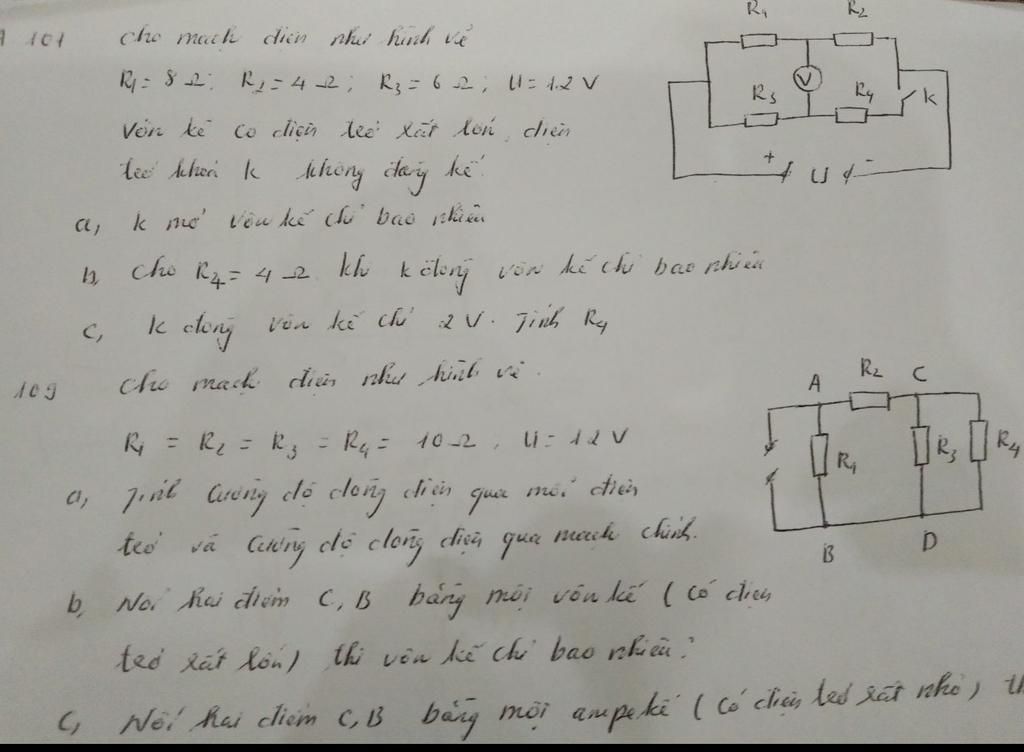 101 Cho mạch điện như hình vẽ
R1 = 8 Ω; R2 = 4 Ω; R3 = 6 Ω; U = 12 V
Vôn kế có điện trở rất lớn, điện
trở khoá K không đáng kể.
a, K mở vôn kế chỉ bao nhiêu
b, Cho R4 = 4 Ω khi K đóng vôn kế chỉ bao nhiêu
c, K đóng vôn kế chỉ 2 V. Tính R4
R1 R2
V
R3 R4 K
+ U -
109 Cho mạch điện như hình vẽ.
R1 = R2 = R3 = R4 = 10 Ω, U = 12 V
a, Tính Cường độ dòng điện qua mỗi điện
trở và Cường độ dòng điện qua mạch chính.
b, Nối hai điểm C, B bằng một vôn kế (có điện
trở rất lớn) thì vôn kế chỉ bao nhiêu?
c, Nối hai điểm C, B bằng một ampe kế (có điện trở rất nhỏ)
A R2 C
R1 R3 R4
B D